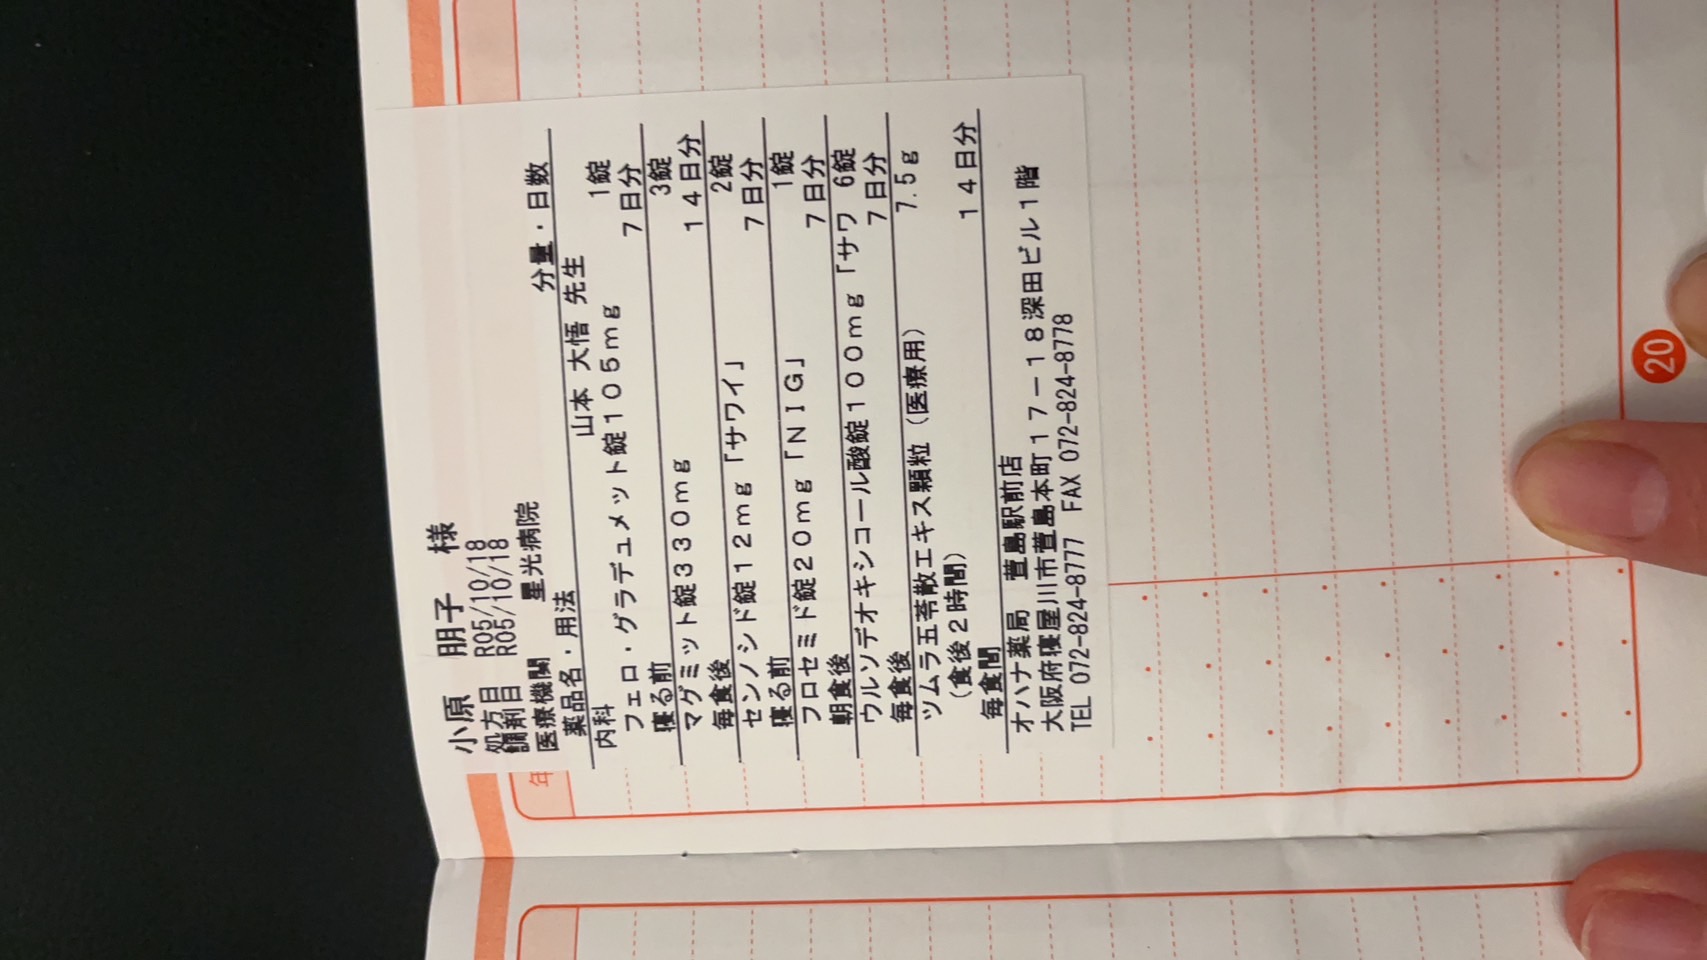 小原 朋子 様
処方日 R05/10/18
調剤日 R05/10/18
医療機関 星光病院
薬品名・用法 分量・日数
内科 山本 大悟 先生
フェロ・グラデュメット錠１０５ｍｇ 1錠
寝る前 ７日分
マグミット錠３３０ｍｇ 3錠
毎食後 １４日分
センノシド錠１２ｍｇ「サワイ」 2錠
寝る前 ７日分
フロセミド錠２０ｍｇ「ＮＩＧ」 1錠
朝食後 ７日分
ウルソデオキシコール酸錠１００ｍｇ「サワ 6錠
毎食後 ７日分
ツムラ五苓散エキス顆粒（医療用） 7.5ｇ
（食後２時間）
毎食間 １４日分
オハナ薬局 萱島駅前店
大阪府寝屋川市萱島本町１７－１８深田ビル１階
TEL 072-824-8777 FAX 072-824-8778
年
20